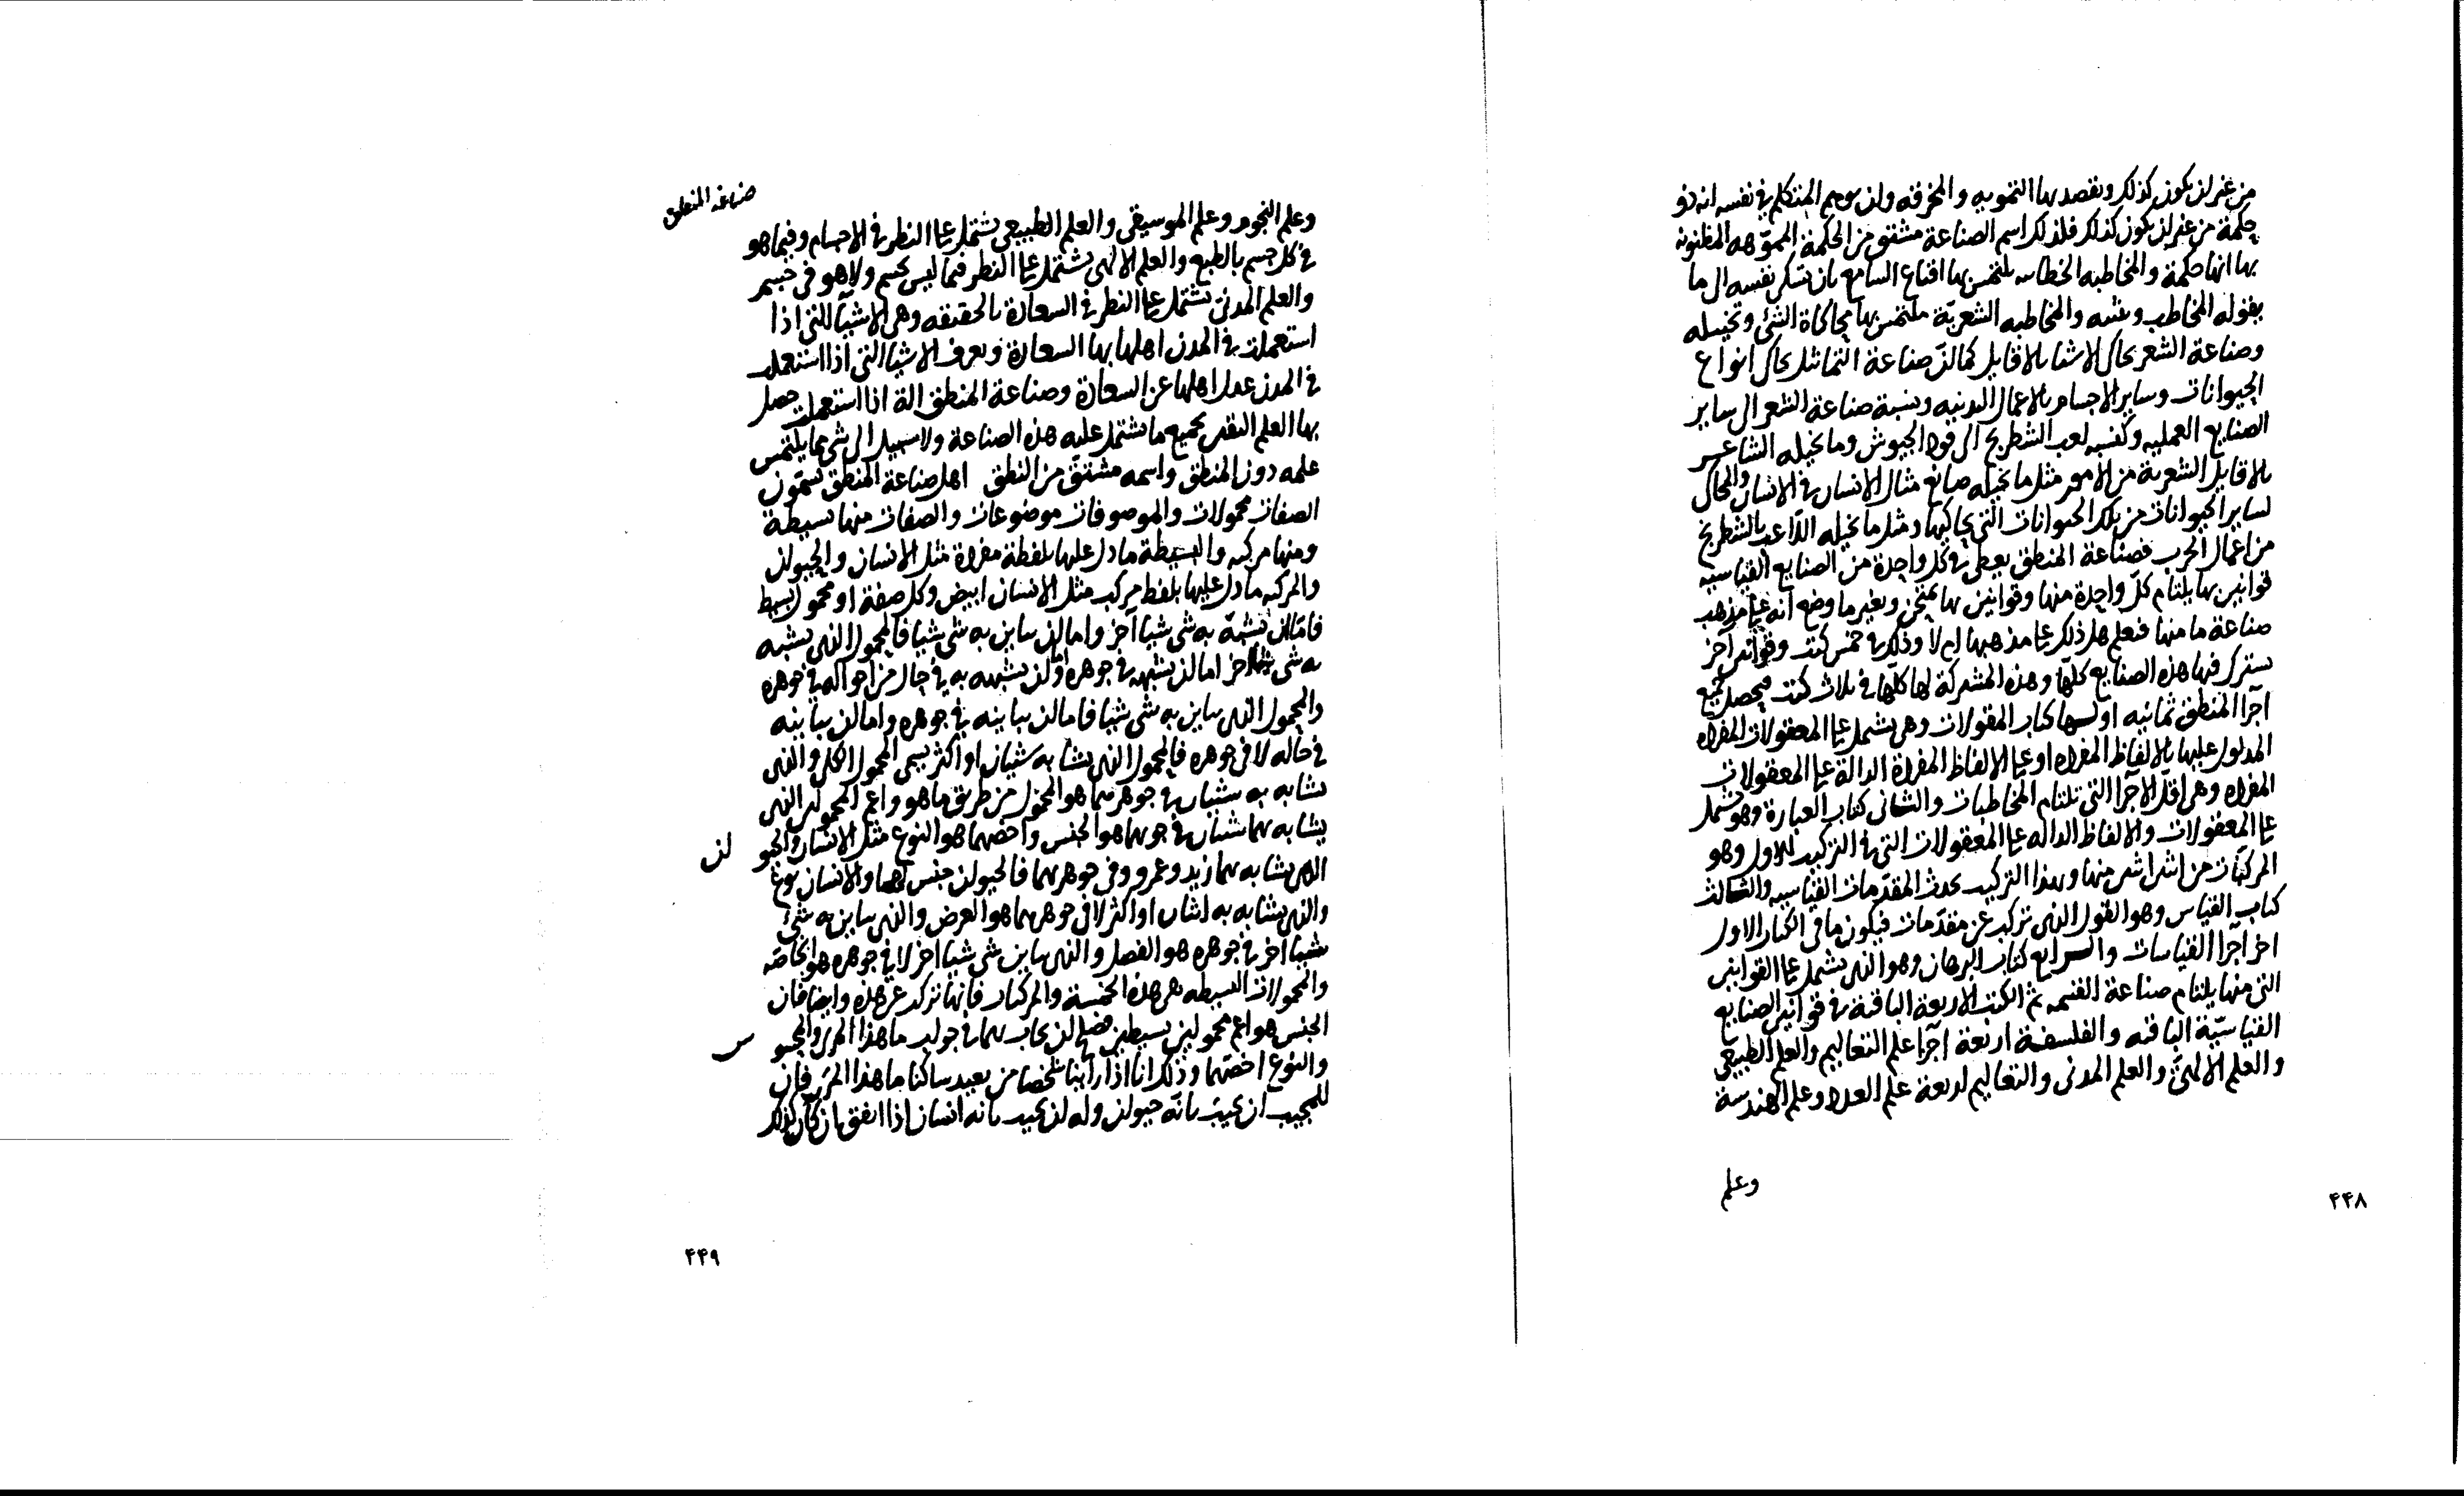 من غير ان يكون كذلك ويقصد بها التمويه والمخرقه وان يوهم المتكلم في نفسه انه ذو
حكمة من غير ان يكون كذلك فلذلك اسم الصناعة مشتق من الحكمة المموّهه المظنونه
بها انها حكمة والمخاطبه الخطابيه يلتمس بها اقناع السامع بان تسكن نفسه الى ما
يقوله المخاطب والمخاطبه الشعريّة يلتمس بها محاكاة الشئ وتخييله
وصناعة الشعر تحاكى الاشيا بالاقاويل كما انّ صناعة التماثيل تحاكى انواع
الحيوانات وساير الاجسام بالاعمال البدنيه ونسبة صناعة الشعر الى ساير
الصنايع العمليه كنسبه لعب الشطرنج الى قود الجيوش وما يخيله الشاعر
بالاقاويل الشعرية من الامور مثل ما يخيله صانع مثال الانسان في الانسان والمحاكى
لساير الحيوانات من تلك الحيوانات التي يحاكيها ومثل ما يخيله اللّاعب بالشطرنج
من اعمال الحرب فصناعة المنطق يعطى في كل واحدة من الصنايع القياسيه
قوانين بها يلتام كلّ واحدة منها وقوانين بها يمتحن ويعتبر ما وضع انه على مذهب
صناعة ما منها فنعلم هل ذلك على مذهبها ام لا وذلك في خمس كتب وقوانين آخر
يشترك فيها هذه الصنايع كلّها وهذه المشتركة لها كلّها في ثلاث كتب فيحصل جميع
آجزا المنطق ثمانيه اوّلها كتاب المقولات وهى يشتمل على المعقولات المفرده
المدلول عليها بالالفاظ المفرده او على الالفاظ المفردة الدالة على المعقولات
المفرده وهى اقلّ الآجزا التى تلتام المخاطبات والثانى كتاب العبارة وهو يشتمل
على المعقولات والالفاظ الداله على المعقولات التى في التركيب الاول وهو
المركبّات من اثنين اثنين منها وبهذا التركيب يحدث المقدّمات القياسيه والثالث
كتاب القياس وهو القول الذى تركب عن مقدّمات فيكون ما في الكتاب الاول
اخر آجزا القياسات والرابع كتاب البرهان وهو الذى يشتمل على القوانين
التى منها يلتام صناعة القسمه ثمّ الكتب الاربعة الباقية في قوانين الصنايع
القياسيّة الباقيه والفلسفة اربعة آجزا علم التعاليم والعلم الطبيعى
والعلم الالهىّ والعلم المدنى والتعاليم اربعة علم العدد وعلم الهندسة
وعلم
۴۴۸
صناعه المنطق
وعلم النجوم وعلم الموسيقى والعلم الطبيعى يشتمل على النظر في الاجسام وفيما هو
في كل جسم بالطبع والعلم الالهى يشتمل على النظر فيما ليس بجسم ولا هو في جسم
والعلم المدنى يشتمل على النظر في السعادة بالحقيقه وهى الاشيآ اللتى اذا
استعملت في المدن اهلها بها السعادة ويعرف الاشيا التى اذا استعملت
في المدن عدل اهلها عن السعادة وصناعة المنطق الة اذا استعملت حصل
بها العلم اليقين بجميع ما يشتمل عليه هذه الصناعة ولا سبيل الى شى مما يلتمس
علمه دون المنطق واسمه مشتقّ من النطق اهل صناعة المنطق يسمّون
الصفات محمولات والموصوفات موضوعات والصفات منها بسيطة
ومنها مركبه والبسيطة ما دلّ عليها بلفظة مفردة مثل الانسان والحيوان
والمركبه ما دلّ عليها بلفظ مركب مثل الانسان ابيض وكل صفة او محمول بسيط
فامّا ان يشبه به شى شيا آخر واما ان يباين به شى شيا فالمحمول الذى يشبه
به شى شيا اخر اما ان يشبهه في جوهره وامّا ان يشبهه به في حال من احواله في جوهره
والمحمول الذى يباين به شى شيا فاما ان يباينه في جوهره واما ان يباينه
في حاله لا في جوهره فالمحمول الذى يشابه به شيان او اكثر يسمى المحمول الكلى والذى
يشابه به شيان في جوهرهما هو المحمول من طريق ما هو واعم المحمولين الذى
يشابه بهما شيان في جوهرهما هو الجنس واخصهما هو النوع مثل الانسان والحيو ان
الذى يشابه بهما زيد وعمرو وفى جوهرهما فالحيوان جنس لهما والانسان نوع
والذى يشابه به اثنان او اكثر لا في جوهرهما هو العرض والذى يباين به شى
شيا اخر في جوهره هو الفصل والذى يباين شى شيا اخر لا في جوهره هو الخاصّه
والمحمولات البسيطه هى هذه الخمسة والمركبات فانها تركب عن هذه وايضا فان
الجنس هو اعم محمولين بسيطين يصلح ان يجاب بهما في جواب ما هذا المرى والجنس
والنوع اخصّهما وذلك انا اذا راينا شخصا من بعيد سالنا ما هذا المرى فان
للمجيب آن يجيب بانّه حيوان وله ان يجيب بانه انسان اذا اتفق ان كان كذلك
۴۴۹